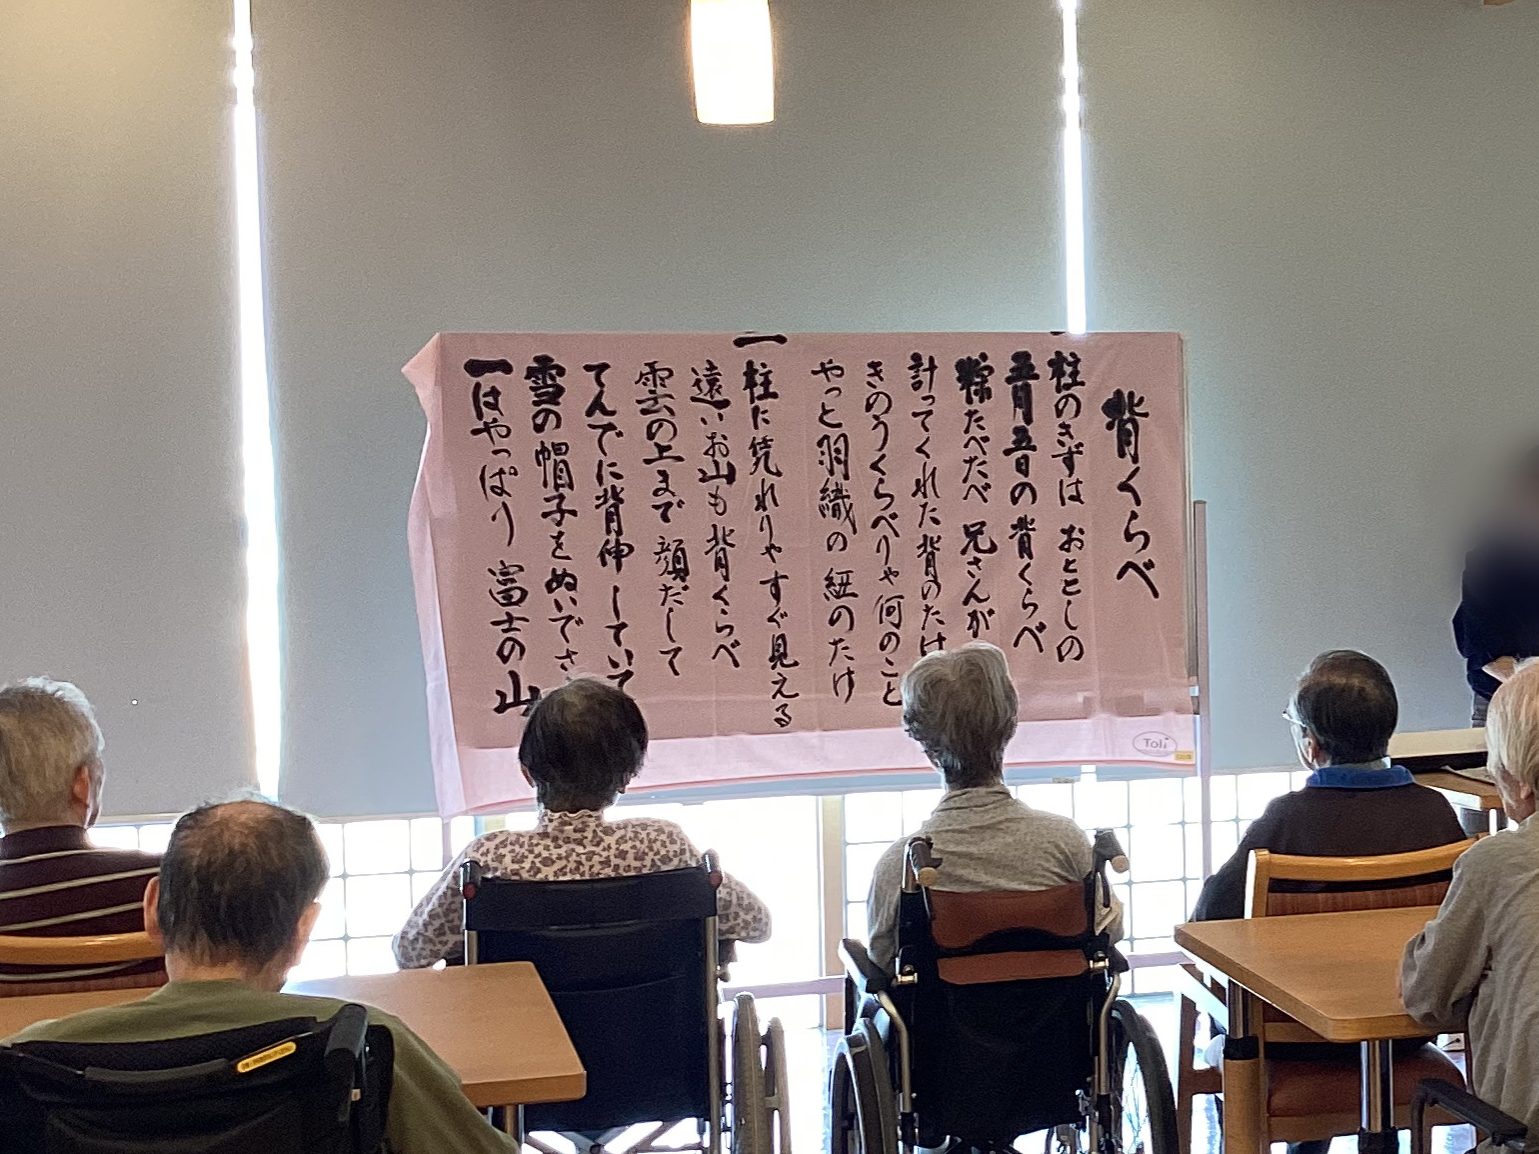 背くらべ
柱のきずは おととしの
五月五日の 背くらべ
粽たべたべ 兄さんが
計ってくれた 背のたけ
きのうくらべりゃ 何のこと
やっと羽織の 紐のたけ
二
柱に凭れりゃ すぐ見える
遠いお山も 背くらべ
雲の上まで 顔だして
てんでに背伸 していて
雪の帽子を ぬいでさ
一はやっぱり 富士の山
Toli